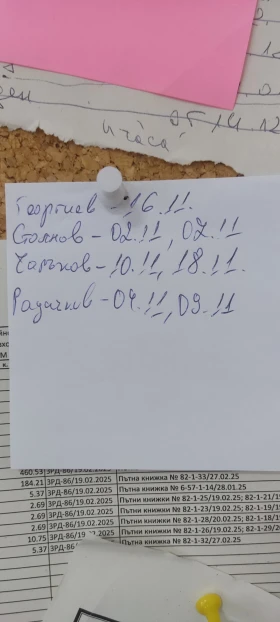 от 14.12
и часа
Георгиев - 16.11.
Стоянов - 02.11, 07.11
Чаръков - 10.11, 18.11.
Радичков - 04.11, 09.11
460.53 ЗРД-86/19.02.2025 Пътна книжка № 82-1-33/27.02.25
184.21 ЗРД-86/19.02.2025 Пътна книжка № 6-57-1-14/28.01.25
5.37 ЗРД-86/19.02.2025 Пътни книжки № 82-1-25/19.02.25; 82-1-21/1
2.69 ЗРД-86/19.02.2025 Пътни книжки № 82-1-23/19.02.25; 82-1-19/
2.69 ЗРД-86/19.02.2025 Пътни книжки № 82-1-28/20.02.25; 82-1-18/1
2.69 ЗРД-86/ Пътни книжки № 82-1-26/19.02.25; 82-1-29/2
10.75 ЗРД-86/19.02.2025 Пътна книжка № 82-1-32/27.02.25
5.37 ЗРД-86